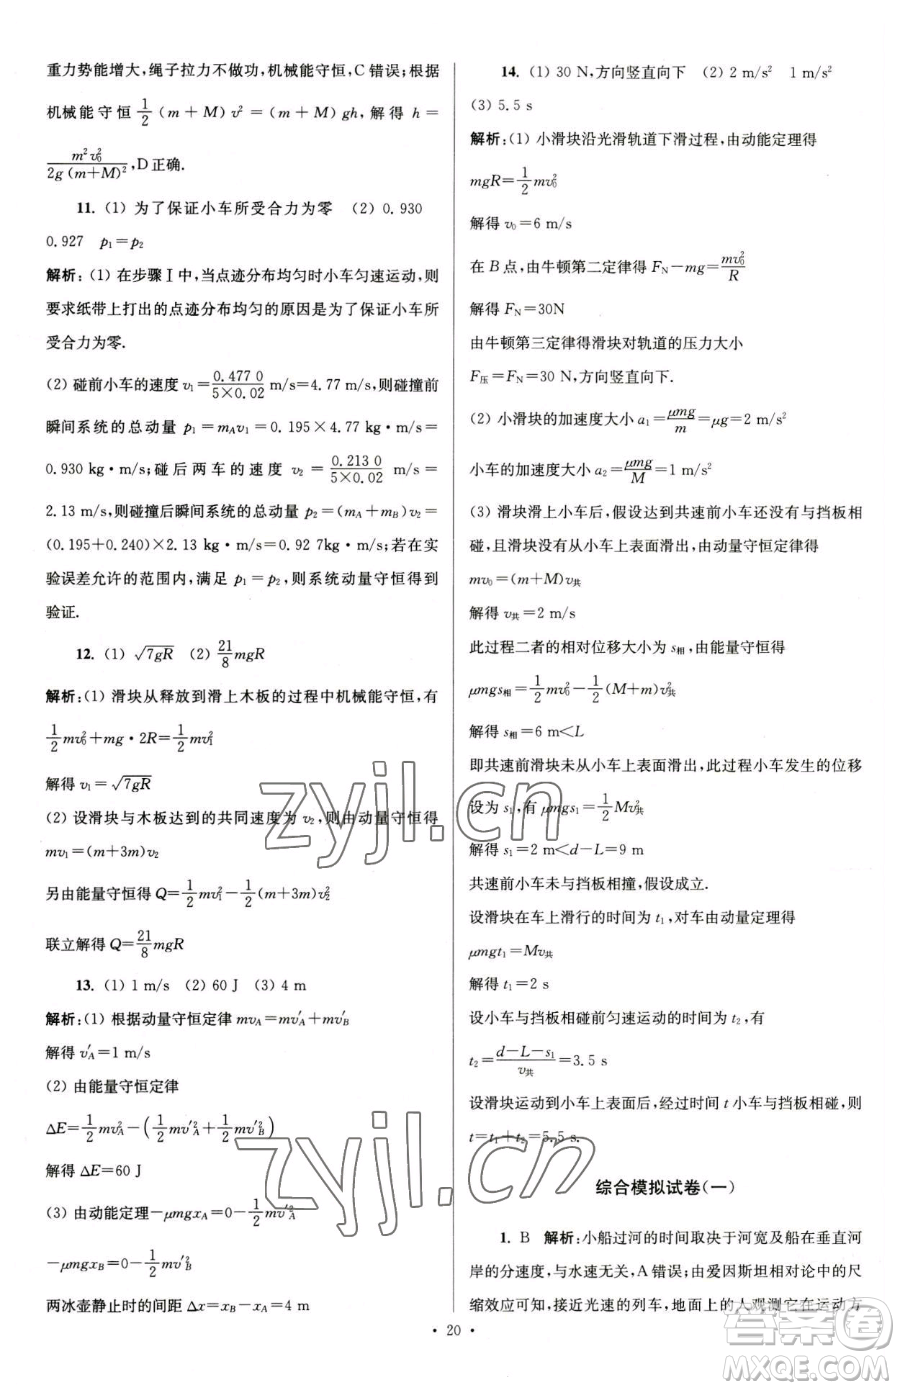 重力势能增大,绳子拉力不做功,机械能守恒,C错误;根据
机械能守恒 \frac{1}{2}(m+M)v²=(m+M)gh,解得 h=
\frac{m²v₀²}{2g(m+M)²},D正确.
11. (1) 为了保证小车所受合力为零 (2) 0.930
0.927 p₁=p₂
解析:(1) 在步骤Ⅰ中,当点迹分布均匀时小车匀速运动,则
要求纸带上打出的点迹分布均匀的原因是为了保证小车所
受合力为零.
(2) 碰前小车的速度 v₁=\frac{0.477 0}{5×0.02} m/s=4.77 m/s,则碰撞前
瞬间系统的总动量 p₁=m_Av₁=0.195×4.77 kg·m/s=
0.930 kg·m/s;碰后两车的速度 v₂=\frac{0.213 0}{5×0.02} m/s=
2.13 m/s,则碰撞后瞬间系统的总动量 p₂=(m_A+m_B)v₂=
(0.195+0.240)×2.13 kg·m/s=0.92 7kg·m/s;若在实
验误差允许的范围内,满足 p₁=p₂,则系统动量守恒得到
验证.
12. (1) \sqrt{7gR} (2) \frac{21}{8}mgR
解析:(1) 滑块从释放到滑上木板的过程中机械能守恒,有
\frac{1}{2}mv₀²+mg·2R=\frac{1}{2}mv₁²
解得 v₁=\sqrt{7gR}
(2) 设滑块与木板达到的共同速度为 v₂,则由动量守恒得
mv₁=(m+3m)v₂
另由能量守恒得 Q=\frac{1}{2}mv₁²-\frac{1}{2}(m+3m)v₂²
联立解得 Q=\frac{21}{8}mgR
13. (1) 1 m/s (2) 60 J (3) 4 m
解析:(1) 根据动量守恒定律 mv_A=mv'_A+mv'_B
解得 v'_A=1 m/s
(2) 由能量守恒定律
ΔE=\frac{1}{2}mv_A²-(\frac{1}{2}mv'_A²+\frac{1}{2}mv'_B²)
解得 ΔE=60 J
(3) 由动能定理-μmgx_A=0-\frac{1}{2}mv'_A²
-μmgx_B=0-\frac{1}{2}mv'_B²
两冰壶静止时的间距 Δx=x_B-x_A=4 m
14. (1) 30 N,方向竖直向下 (2) 2 m/s² 1 m/s²
(3) 5.5 s
解析:(1) 小滑块沿光滑轨道下滑过程,由动能定理得
mgR=\frac{1}{2}mv₀²
解得 v₀=6 m/s
在 B 点,由牛顿第二定律得 F_N-mg=\frac{mv₀²}{R}
解得 F_N=30N
由牛顿第三定律得滑块对轨道的压力大小
F_压=F_N=30 N,方向竖直向下.
(2) 小滑块的加速度大小 a₁=\frac{μmg}{m}=μg=2 m/s²
小车的加速度大小 a₂=\frac{μmg}{M}=1 m/s²
(3) 滑块滑上小车后,假设达到共速前小车还没有与挡板相
碰,且滑块没有从小车上表面滑出,由动量守恒定律得
mv₀=(m+M)v_共
解得 v_共=2 m/s
此过程二者的相对位移大小为 s_相,由能量守恒得
μmgs_相=\frac{1}{2}mv₀²-\frac{1}{2}(M+m)v_共²
解得 s_相=6 m<L
即共速前滑块未从小车上表面滑出,此过程小车发生的位移
设为 s₁,有 μmgs₁=\frac{1}{2}Mv_共²
解得 s₁=2 m<d-L=9 m
共速前小车未与挡板相撞,假设成立.
设滑块在车上滑行的时间为 t₁,对车由动量定理得
μmgt₁=Mv_共
解得 t₁=2 s
设小车与挡板碰前匀速运动的时间为 t₂,有
t₂=\frac{d-L-s₁}{v_共}=3.5 s
设滑块运动到小车上表面后,经过时间 t 小车与挡板相碰,则
t=t₁+t₂=5.5 s.
综合模拟试卷(一)
1. B 解析:小船过河的时间取决于河宽及船在垂直河
岸的分速度,与水速无关,A错误;由爱因斯坦相对论中的尺
缩效应可知,接近光速的列车,地面上的人观测它在运动方
• 20 •
zyjl.cn
zyjl.cn
答案圈
MXQE.COM